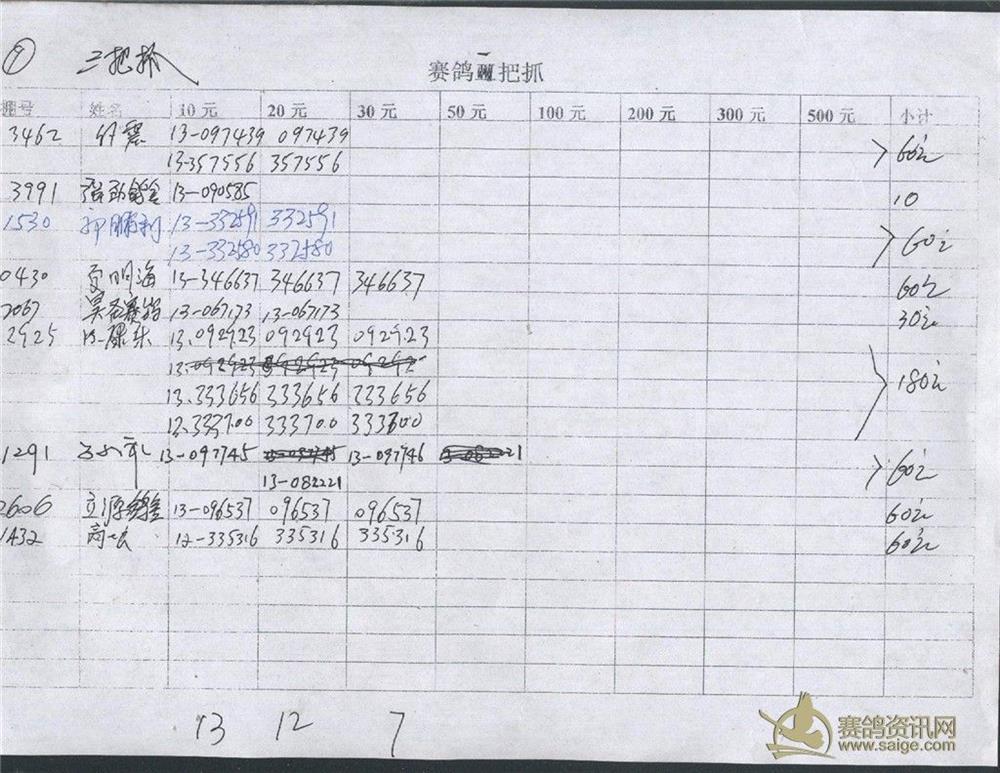 ⑨ 三把抓
赛鸽 把抓
棚号 姓名 10元 20元 30元 50元 100元 200元 300元 500元 小计
3462 13-097439 097439
13-357556 357556 60元
3991 13-090585 10
1530 13-332591 332591
13-332580 332580 60元
0430 明海 13-346637 346637 346637 60元
2067 13-067173 13-067173 30元
2925 13.092923 092923 092923
13.092923 092923
13.333656 333656 333656 180元
12.333700 333700 333700
1291 13-097745 13-097746
13-082221 60元
2606 立源 13-096537 096537 096537 60元
1432 12-335316 335316 335316 60元
13 12 7
赛鸽资讯网
www.saige.com